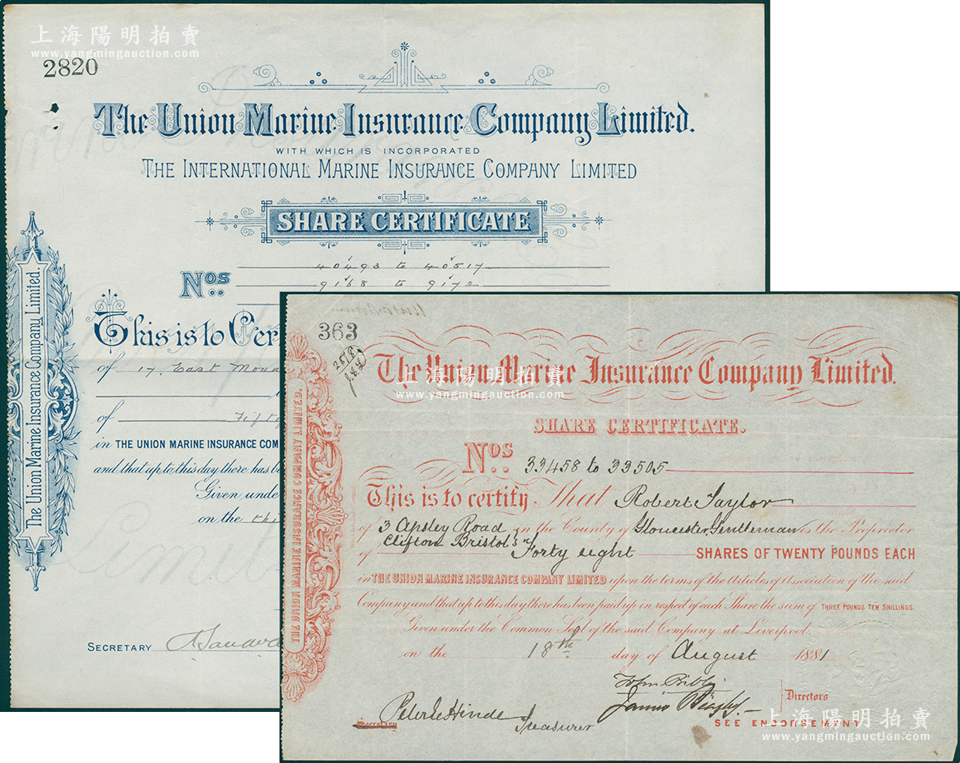 上海陽明拍賣
www.yangmingauction.com
2820
The Union Marine Insurance Company Limited.
WITH WHICH IS INCORPORATED
THE INTERNATIONAL MARINE INSURANCE COMPANY LIMITED
SHARE CERTIFICATE
Nos.
40493 to 40517
9168 to 9172
This is to Cer
of 17, East Moun
of Fifty
in THE UNION MARINE INSURANCE COM
and that up to this day there has be
Given unde
on the thi
SECRETARY
The Union Marine Insurance Company Limited.
363
上海陽明拍賣
www.yangmingauction.com
The Union Marine Insurance Company Limited.
SHARE CERTIFICATE.
Nos. 33458 to 33505
This is to certify That Robert Taylor
of 3 Apsley Road in the County of Gloucester, Gentleman is the Proprietor
Clifton Bristol
of Forty eight SHARES OF TWENTY POUNDS EACH
in THE UNION MARINE INSURANCE COMPANY LIMITED upon the terms of the Articles of Association of the said
Company and that up to this day there has been paid up in respect of each Share the sum of THREE POUNDS TEN SHILLINGS.
Given under the Common Seal of the said Company at Liverpool
on the 18th day of August 1881
Directors
Peter L Hinde
Secretary Treasurer
SEE ENDORSEMENT
THE UNION MARINE INSURANCE COMPANY LIMITED.
上海陽明拍賣
www.yangmingauction.com